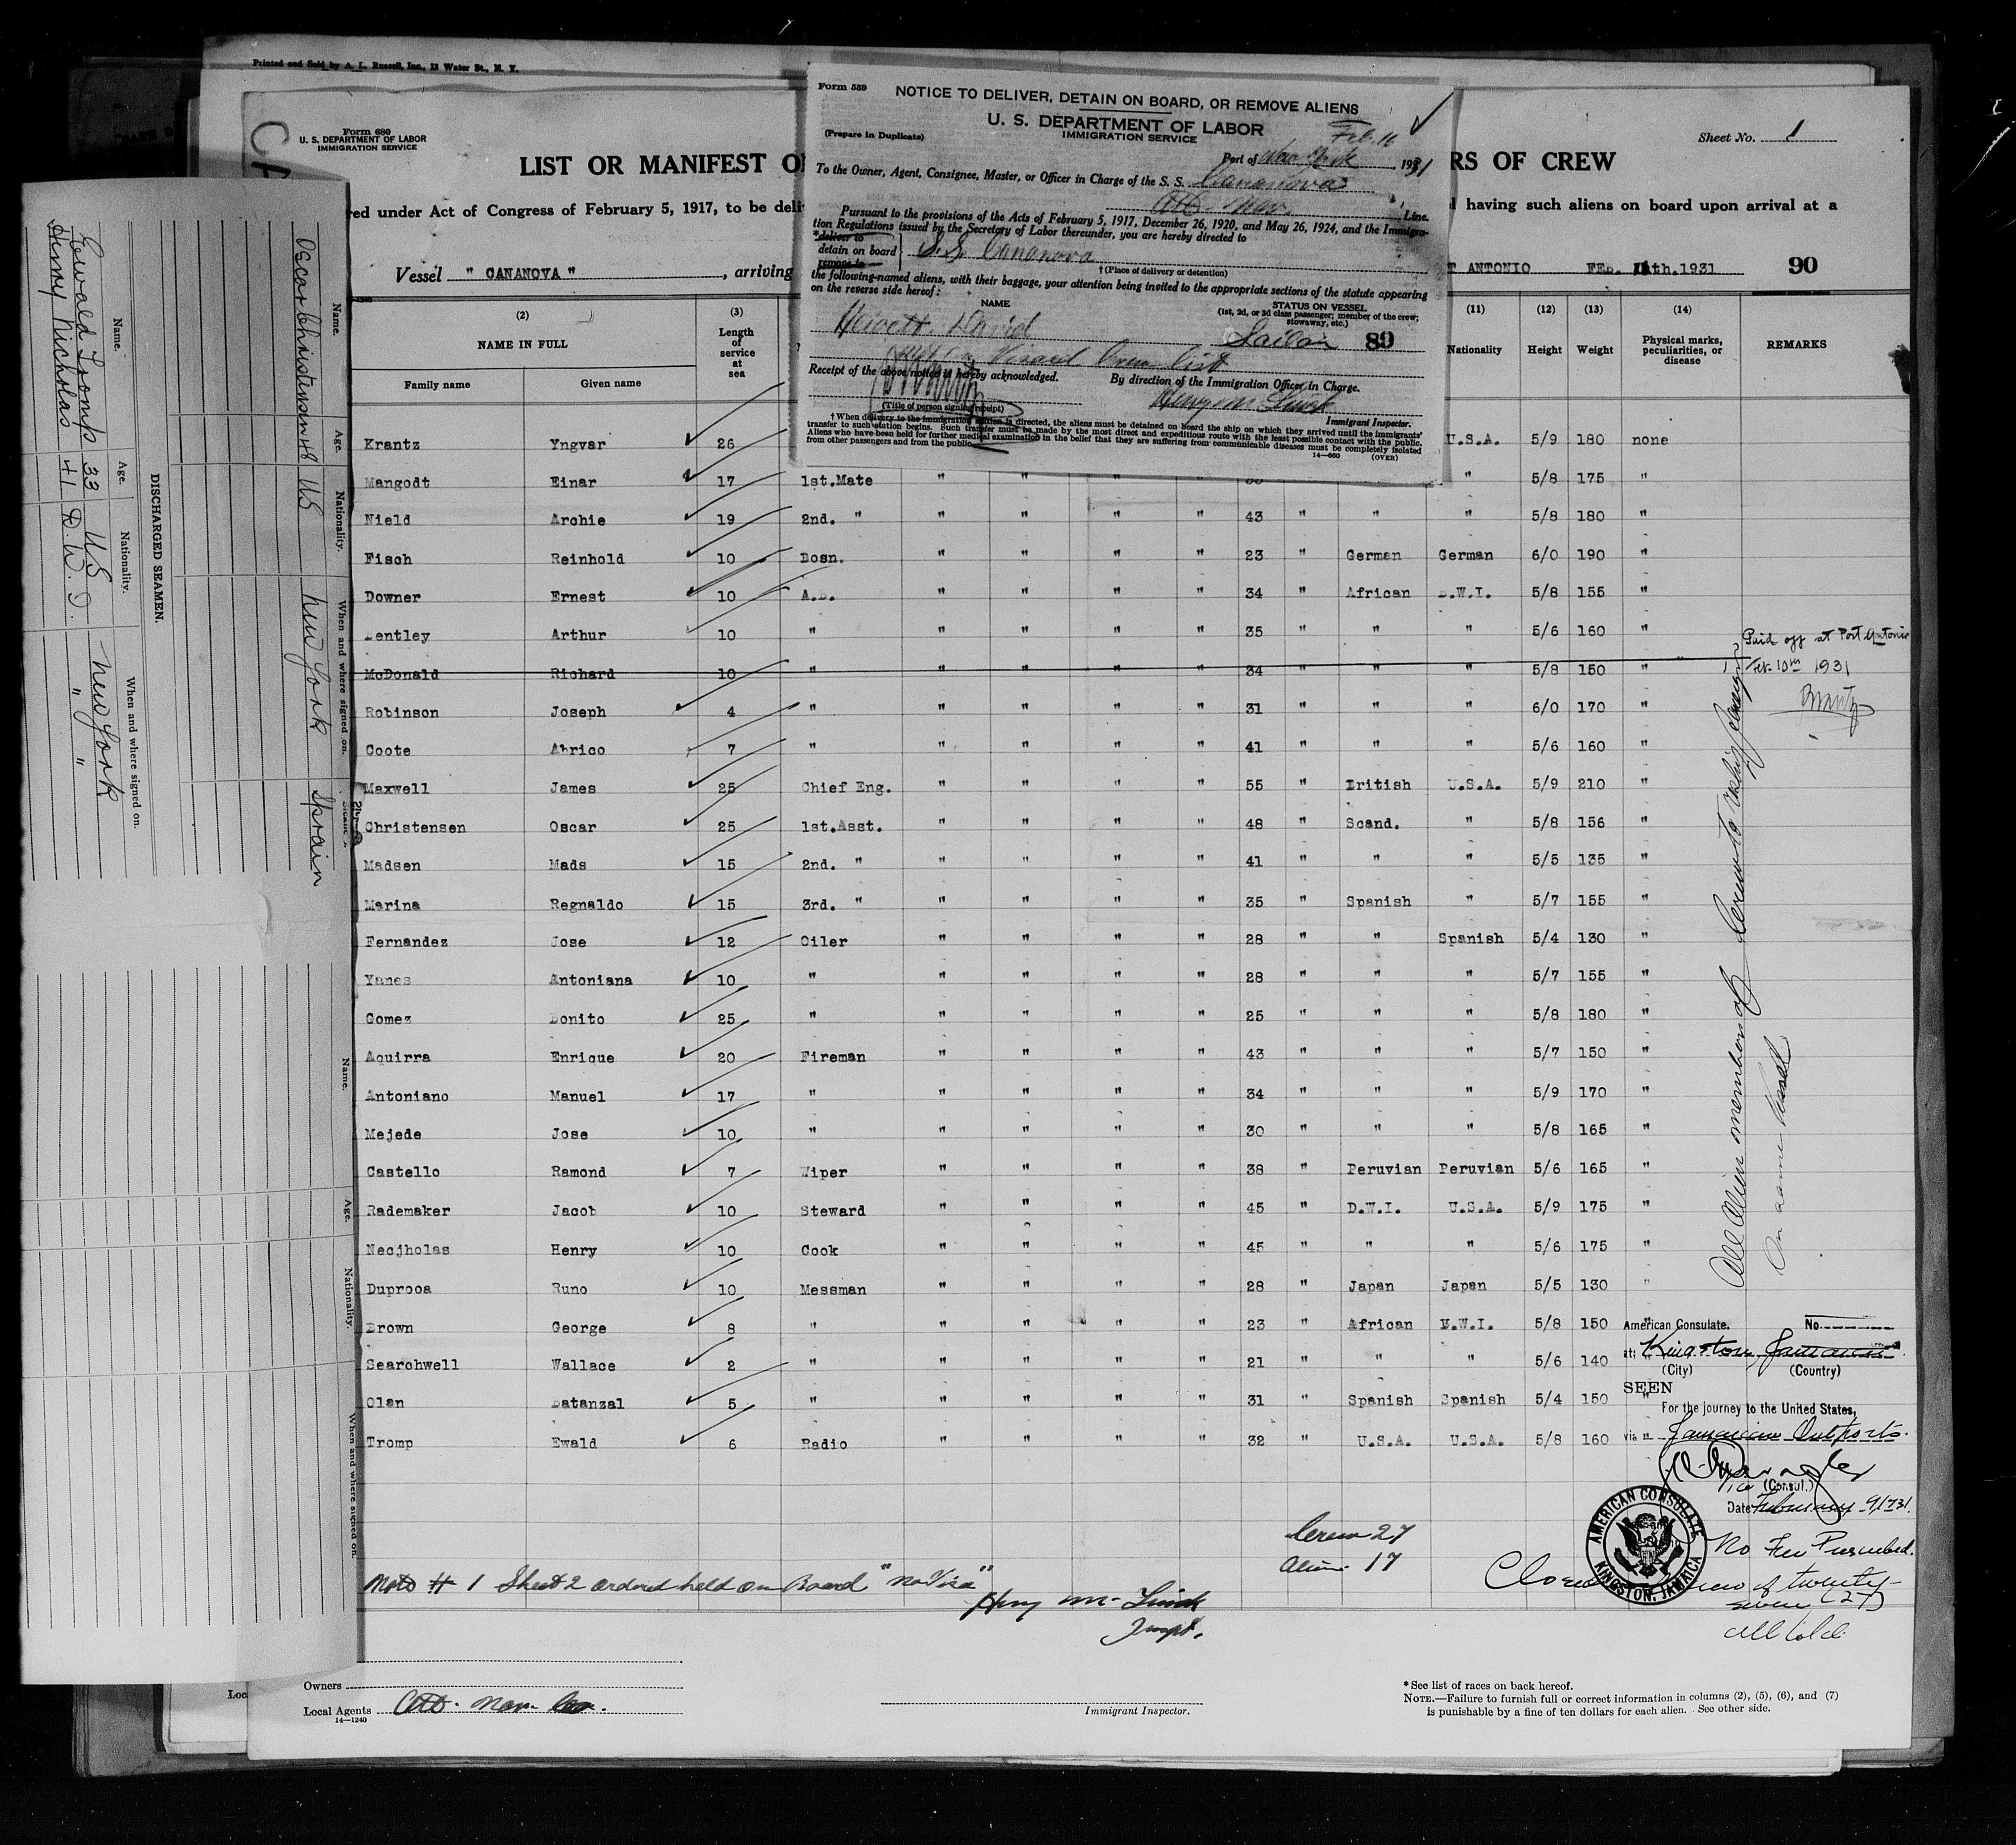 Printed and Sold by A. L. Russell, Inc., 13 Water St., N. Y.
Form 680
U. S. DEPARTMENT OF LABOR
IMMIGRATION SERVICE
LIST OR MANIFEST O
RS OF CREW
Sheet No. 1
red under Act of Congress of February 5, 1917, to be deli
having such aliens on board upon arrival at a
Vessel " CANANOVA " , arriving
T ANTONIO FEB. 11th.1931 90
Form 559
NOTICE TO DELIVER, DETAIN ON BOARD, OR REMOVE ALIENS
U. S. DEPARTMENT OF LABOR
IMMIGRATION SERVICE
(Prepare in Duplicate)
Feb. 16
Port of New York 1931
To the Owner, Agent, Consignee, Master, or Officer in Charge of the S. S. Cananova
Atl. Nav. Line.
Pursuant to the provisions of the Acts of February 5, 1917, December 26, 1920, and May 26, 1924, and the Immigra-
tion Regulations issued by the Secretary of Labor thereunder, you are hereby directed to
*deliver to
detain on board S.S. Cananova
remove to
† (Place of delivery or detention)
the following-named aliens, with their baggage, your attention being invited to the appropriate sections of the statute appearing
on the reverse side hereof:
NAME STATUS ON VESSEL
(1st, 2d, or 3d class passenger; member of the crew;
stowaway, etc.)
Hewett David Sailor 89
Visaed Crew list
Receipt of the above notice is hereby acknowledged. By direction of the Immigration Officer in Charge.
Henry M Smith
(Title of person signing receipt) Immigrant Inspector.
† When delivery to the immigration station is directed, the aliens must be detained on board the ship on which they arrived until the immigrants'
transfer to such station begins. Such transfer must be made by the most direct and expeditious route with the least possible contact with the public.
Aliens who have been held for further medical examination in the belief that they are suffering from communicable diseases must be completely isolated
from other passengers and from the public.
14—660 (OVER)
(2) (3) (11) (12) (13) (14)
NAME IN FULL Length of service at sea Nationality Height Weight Physical marks, peculiarities, or disease REMARKS
Family name Given name
Krantz Yngvar 26 U.S.A. 5/9 180 none
Mangodt Einar 17 1st.Mate " " " " " " 5/8 175 "
Nield Archie 19 2nd. " " " " " 43 " " " 5/8 180 "
Fisch Reinhold 10 Bosn. " " " " 23 " German German 6/0 190 "
Downer Ernest 10 A.B. " " " " 34 " African B.W.I. 5/8 155 "
Bentley Arthur 10 " " " " " 35 " " " 5/6 160 "
McDonald Richard 10 " " " " " 34 " " " 5/8 150 "
Paid off at Port Antonio
Feb. 10th 1931
Krantz
Robinson Joseph 4 " " " " " 31 " " " 6/0 170 "
Coote Abrico 7 " " " " " 41 " " " 5/6 160 "
Maxwell James 25 Chief Eng. " " " " 55 " British U.S.A. 5/9 210 "
Christensen Oscar 25 1st.Asst. " " " " 48 " Scand. " 5/8 156 "
Madsen Mads 15 2nd. " " " " " 41 " " " 5/5 135 "
Marina Regnaldo 15 3rd. " " " " " 35 " Spanish " 5/7 155 "
Fernandez Jose 12 Oiler " " " " 28 " " Spanish 5/4 130 "
Yanes Antoniana 10 " " " " " 28 " " " 5/7 155 "
Gomez Bonito 25 " " " " " 25 " " " 5/8 180 "
Aquirra Enrique 20 Fireman " " " " 43 " " " 5/7 150 "
Antoniano Manuel 17 " " " " " 34 " " " 5/9 170 "
Mejede Jose 10 " " " " " 30 " " " 5/8 165 "
Castello Ramond 7 Wiper " " " " 38 " Peruvian Peruvian 5/6 165 "
Rademaker Jacob 10 Steward " " " " 45 " D.W.I. U.S.A. 5/9 175 "
Necjholas Henry 10 Cook " " " " 45 " " " 5/6 175 "
Duprooa Runo 10 Messman " " " " 28 " Japan Japan 5/5 130 "
Brown George 8 " " " " " 23 " African B.W.I. 5/8 150 "
Searchwell Wallace 2 " " " " " 21 " " " 5/6 140 "
Olan Batanzal 5 " " " " " 31 " Spanish Spanish 5/4 150 "
Tromp Ewald 6 Radio " " " " 32 " U.S.A. U.S.A. 5/8 160 "
All Alien members of Crew to
On same Vessel
American Consulate. No.
at: Kingston, Jamaica
(City) (Country)
SEEN
For the journey to the United States,
via Jamaican Outports.
Vice (Consul.)
Date February 9/1931
AMERICAN CONSULATE
KINGSTON, JAMAICA
No Fee Prescribed.
Crew 27
Alien 17
Note # 1 Sheet 2 ordered held on Board "no Visa"
Henry M. Smith
Inspt.
crew of twenty-
seven (27)
all told
Owners
Local Agents Atl. Nav. Co.
14—1240
Immigrant Inspector.
* See list of races on back hereof.
NOTE.—Failure to furnish full or correct information in columns (2), (5), (6), and (7)
is punishable by a fine of ten dollars for each alien. See other side.
Loc
DISCHARGED SEAMEN.
Name. Age. Nationality. When and where signed on.
Ewald Tromp 33 US New York
Henry Nicholas 41 D.W.I. " "
Name. Age. Nationality. When and where signed on.
Oscar Christensen 48 US New York Sprain
Name. Age. Nationality. When and where signed on.